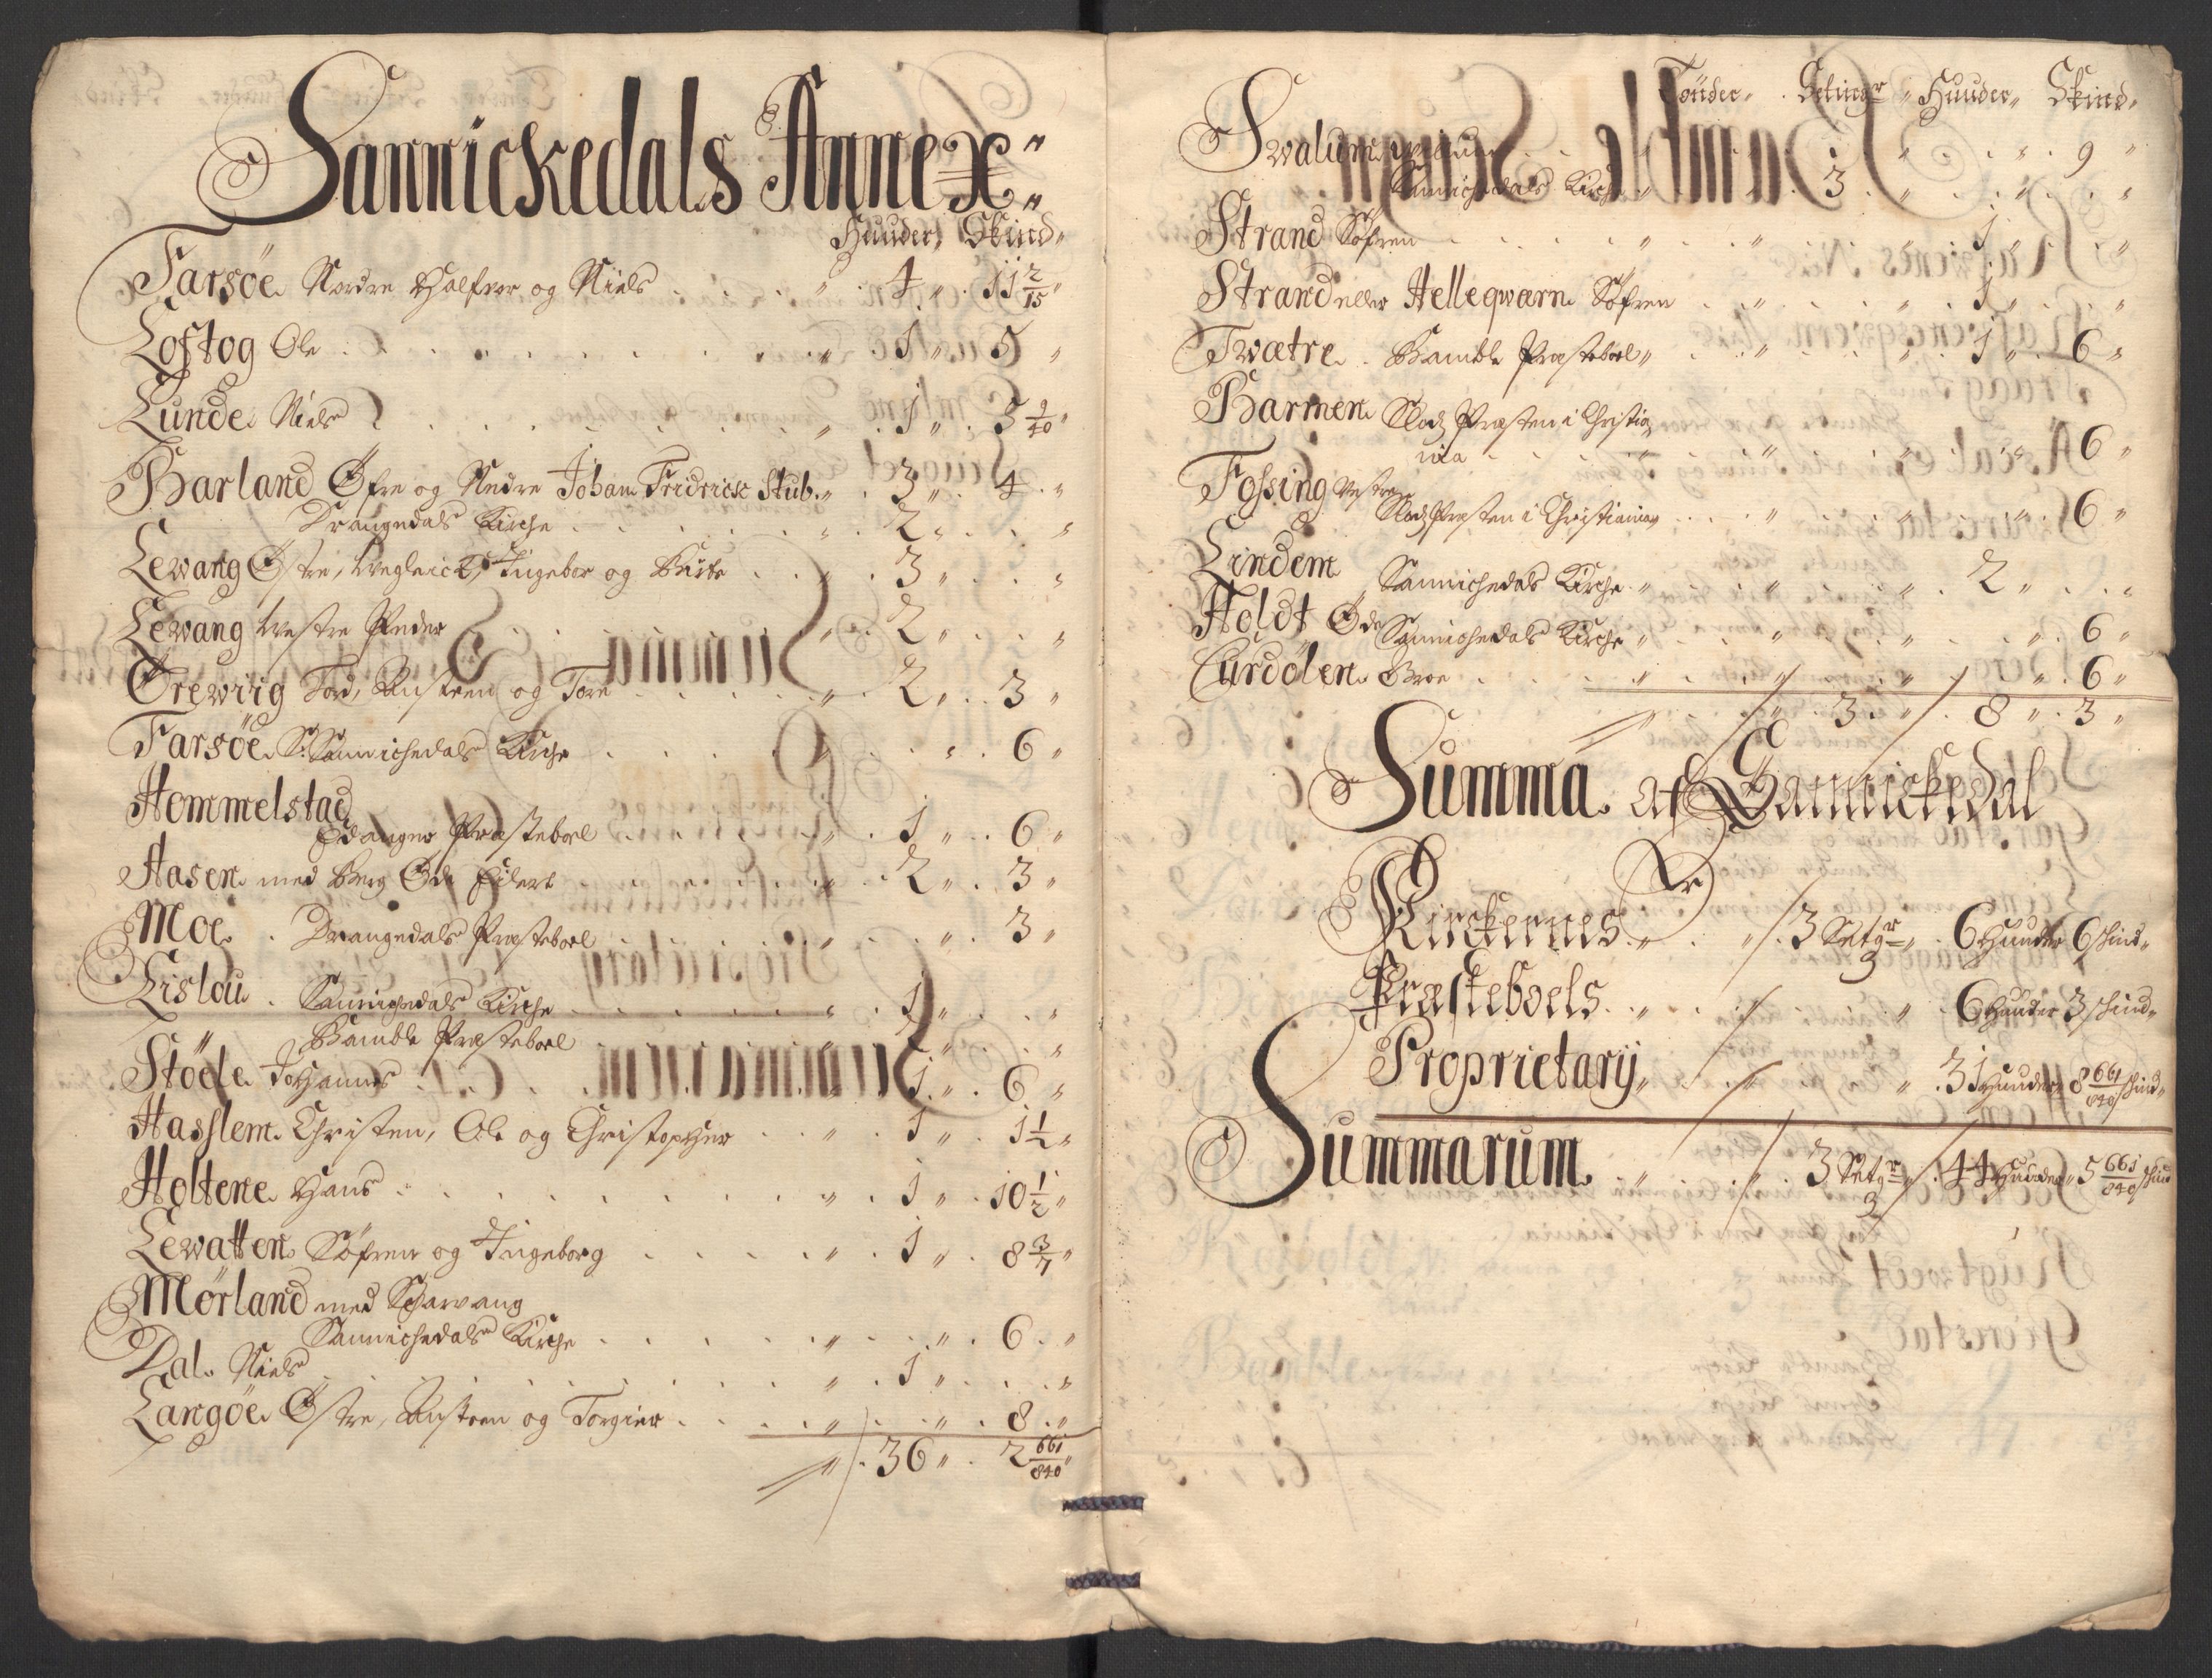 Sannickedals Annex:
Huuder, Skind,
Farsöe Nordre Halfvor og Niels . . . . " . 4 " . 11 2/15 "
Loftog Ole . . . . . . . . . . . " . 1 " . 5 "
Lunde Niels . . . . . . . . . " . 1 " . 3 9/40 "
Barland Øfre og Nedre Johan Fridrick Stub. " . 3 " . 4 . "
Drangedals Kirche . . . . . . . " . 2 " . . "
Lewang Østre, Ingebor og . . " . 3 " . . "
Lewang Westre Peder . . . . . . . " . 2 " . . "
Örewiig Tord, Austeen og Tore . . . . . " . 2 " . . 3 "
Farsöe S. Sannichedals Kirche . . . . . " . . " . . 6 "
Hommelstad
Eidanger Præsteboel . . . . . " . 1 " . . 6 "
Aasen med Berg Øde Eilert . . . . . " . 2 " . . 3 "
Moe . Drangedals Præsteboel . . . . . " . . " . . 3 "
Lislou . Sannichedals Kirche . . . . . " . 1 " . . "
" Bamble Præsteboel . . . . . " . 2 " . . "
Stöele Johannes . . . . . . . . " . 1 " . . 6 "
Hasslem Christen, Ole og Christopher . . " . 1 " . . 1 1/2 "
Holtene Hans . . . . . . . . . " . 1 " . 10 1/2 "
Lewatten Söfren og Ingeborg . . . . . " . 1 " . 8 3/7 "
Mörland med Scharvang
Sannichedals Kirche . . . . . " . . " . . 6 . "
Dal. Niels . . . . . . . . . . " . 1 " . . "
Langöe Østre, Austeen og Torgier . . . . " . . " . 8 . "
" . 36 " . 2 661/840 "
Tönder, . Setingr " Huuder, Skind,
Swalum . . . . . " . . " . 9 "
Sannichedals Kirche " . . . . 3 . " . . " . . "
Strand Söfren . . . . . " . . " . . 1 " . . "
Strand eller Helleqwærn Söfren . . " . . . " . . 1 " . . "
Twætre . Bamble Præsteboel " . . " . . " . 1 " . 6 "
Barmen Slotz Præsten i Christia
nia . . . . . " . . " . . " . . " 6 "
Fossing Vestre
Slotz Præsten i Christiania . . . " . . " . . " 6 "
Lindem
Sannichedals Kirche . " . . " . . " . 2 " . . "
Holdt Øde Sannichedals Kirche " . . " . . " . . " 6 "
Curdölen . . . . . " . . " . . " . . " 6 "
" . 3 . " . 8 " . 3 "
Summa af Sannickedal
Kirckernes . " . . " . 3 Setgr " . 6 Huuder 6 skind "
3
Præsteboels . " . . " . . " 6 Huuder 3 skind "
Proprietarij " . . " . . " . 31 Huuder 8 661/840 skind "
Summarum . " . " . 3 Setgr " . 44 Huuder " 5 661/840 skind
3